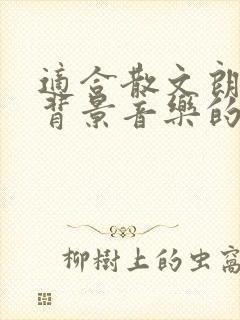 適合散文朗
背景音樂的
柳樹上的虫窩